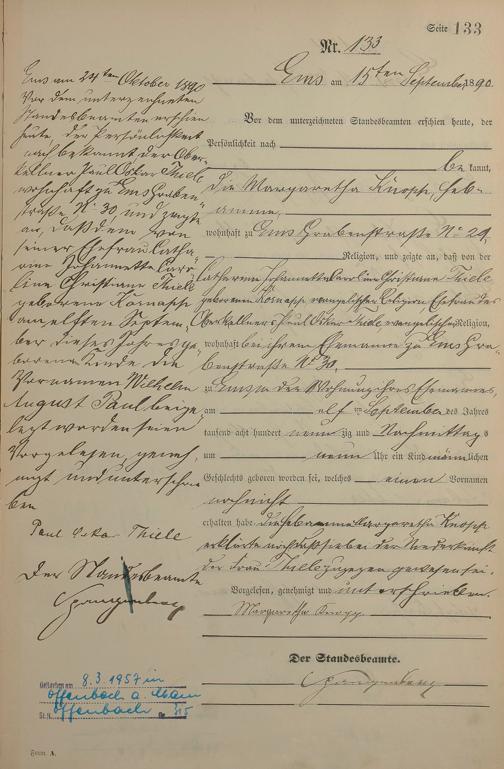 Seite 133
Nr. 133
Ems am 15ten September 1890.
Vor dem unterzeichneten Standesbeamten erschien heute, der
Persönlichkeit nach
bekannt,
die Margaretha Knosp, Heb-
amme,
wohnhaft zu Ems Grabenstraße No 29,
Religion, und zeigte an, daß von der
Catharine Johannette Caroline Christiane Thiele
geborenen evangelischer Religion Ehefrau des
Oberkellners Paul Oskar Thiele evangelischer Religion,
wohnhaft bei ihrem Ehemanne zu Ems Gra-
benstraße No 30,
zu Ems in der Wohnung ihres Ehemannes,
am elf ten September des Jahres
tausend acht hundert neun zig und Nachmittags
um neun Uhr ein Kind männlichen
Geschlechts geboren worden sei, welches einen Vornamen
noch nicht
erhalten habe. die Hebamme Margaretha Knosp
erklärte noch daß sie bei der Niederkunft
der Frau Thiele zugegen gewesen sei.
Vorgelesen, genehmigt und unterschrieben.
Margaretha
Der Standesbeamte.
Spangenberg
Ems am 24ten Oktober 1890
Vor dem unterzeichneten
Standesbeamten erschien
heute der Persönlichkeit
nach bekannt der Ober-
kellner Paul Oskar Thiele
wohnhaft zu Ems Graben-
straße No 30 und zeigte
an, daß dem von
seiner Ehefrau Catha-
rine Johannette Caro-
line Christiane Thiele
geborene
am elften Septem-
ber dieses Jahres ge-
borenen Kinde die
Vornamen Wilhelm
August Paul beige-
legt worden seien
Vorgelesen, geneh-
migt und unterschrie-
ben
Paul Oskar Thiele
Der Standesbeamte
Spangenberg
Gestorben am 8.3.1957 in
Offenbach a. Main
St.A. Offenbach Nr.
Form A.